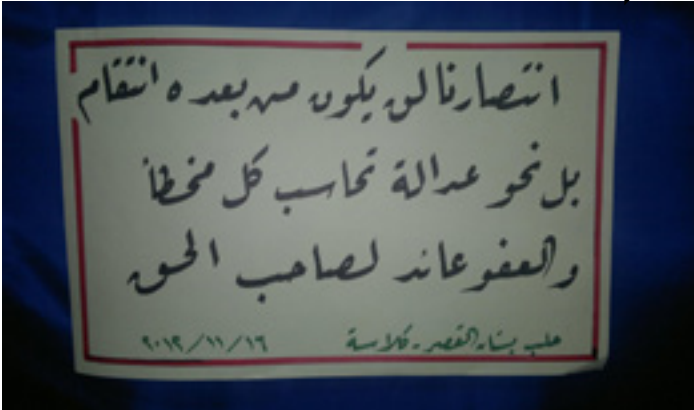 انتصارنا لن يكون من بعده انتقام
بل نحو عدالة تحاسب كل مخطأ
والعفو عائد لصاحب الحق
حلب بستان القصر - كلاسة ٢٠١٢/١١/١٦